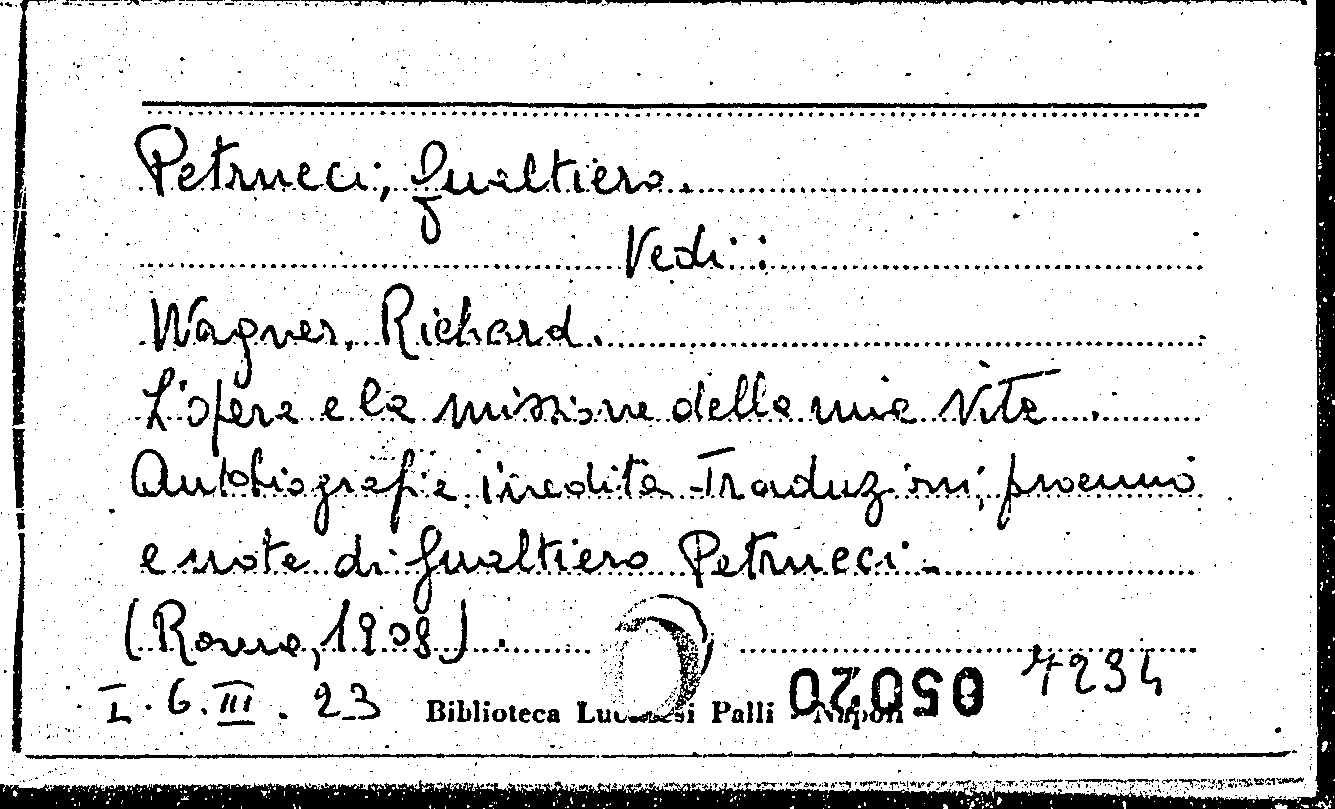 Petrucci, Gualtiero.
Vedi:
Wagner, Richard.
L'opera e la missione della mia vita.
Autobiografia inedita - Traduzioni, proemio
e note di Gualtiero Petrucci -
(Roma, 1908).
I. 6. III. 23
Biblioteca Lucchesi Palli - Napoli
05020
7234